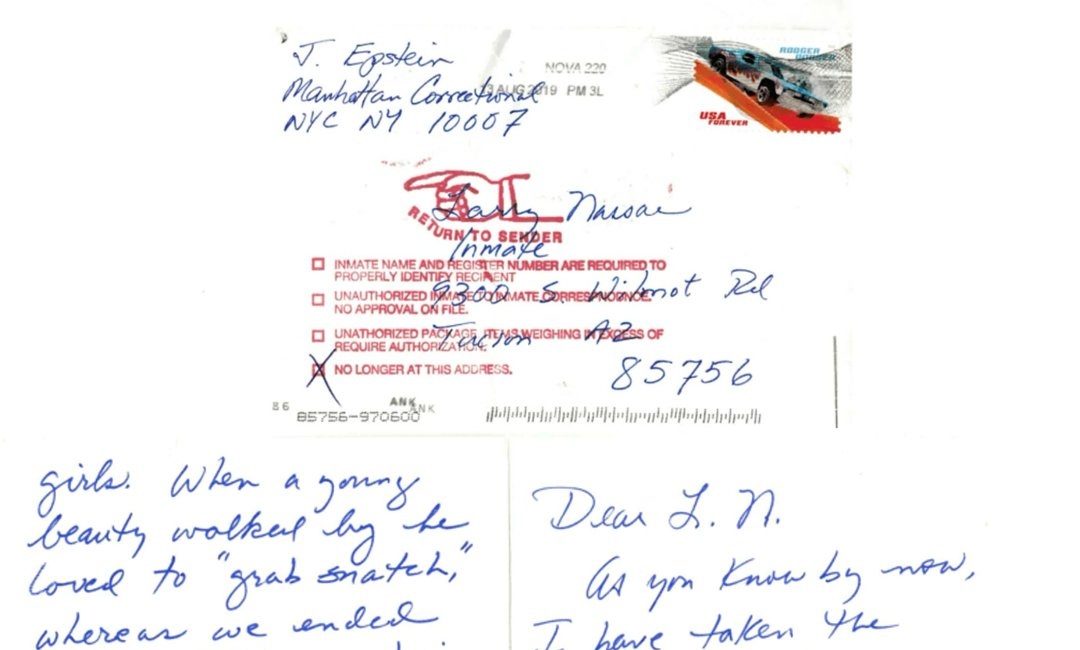 J. Epstein
Manhattan Correctional
NYC NY 10007
NOVA 220
13 AUG 2019 PM 3L
RODGER
USA
FOREVER
RETURN TO SENDER
Larry Nassar
Inmate
9300 S. Wilmot Rd
Tucson AZ
85756
INMATE NAME AND REGISTER NUMBER ARE REQUIRED TO
PROPERLY IDENTIFY RECIPIENT
UNAUTHORIZED INMATE TO INMATE CORRESPONDENCE.
NO APPROVAL ON FILE.
UNATHORIZED PACKAGE, ITEMS WEIGHING IN EXCESS OF
REQUIRE AUTHORIZATION.
X NO LONGER AT THIS ADDRESS.
86
ANK
ANK
85756-970600
girls. When a young
beauty walked by he
loved to "grab snatch,"
whereas we ended
Dear L. N.
As you know by now,
I have taken the